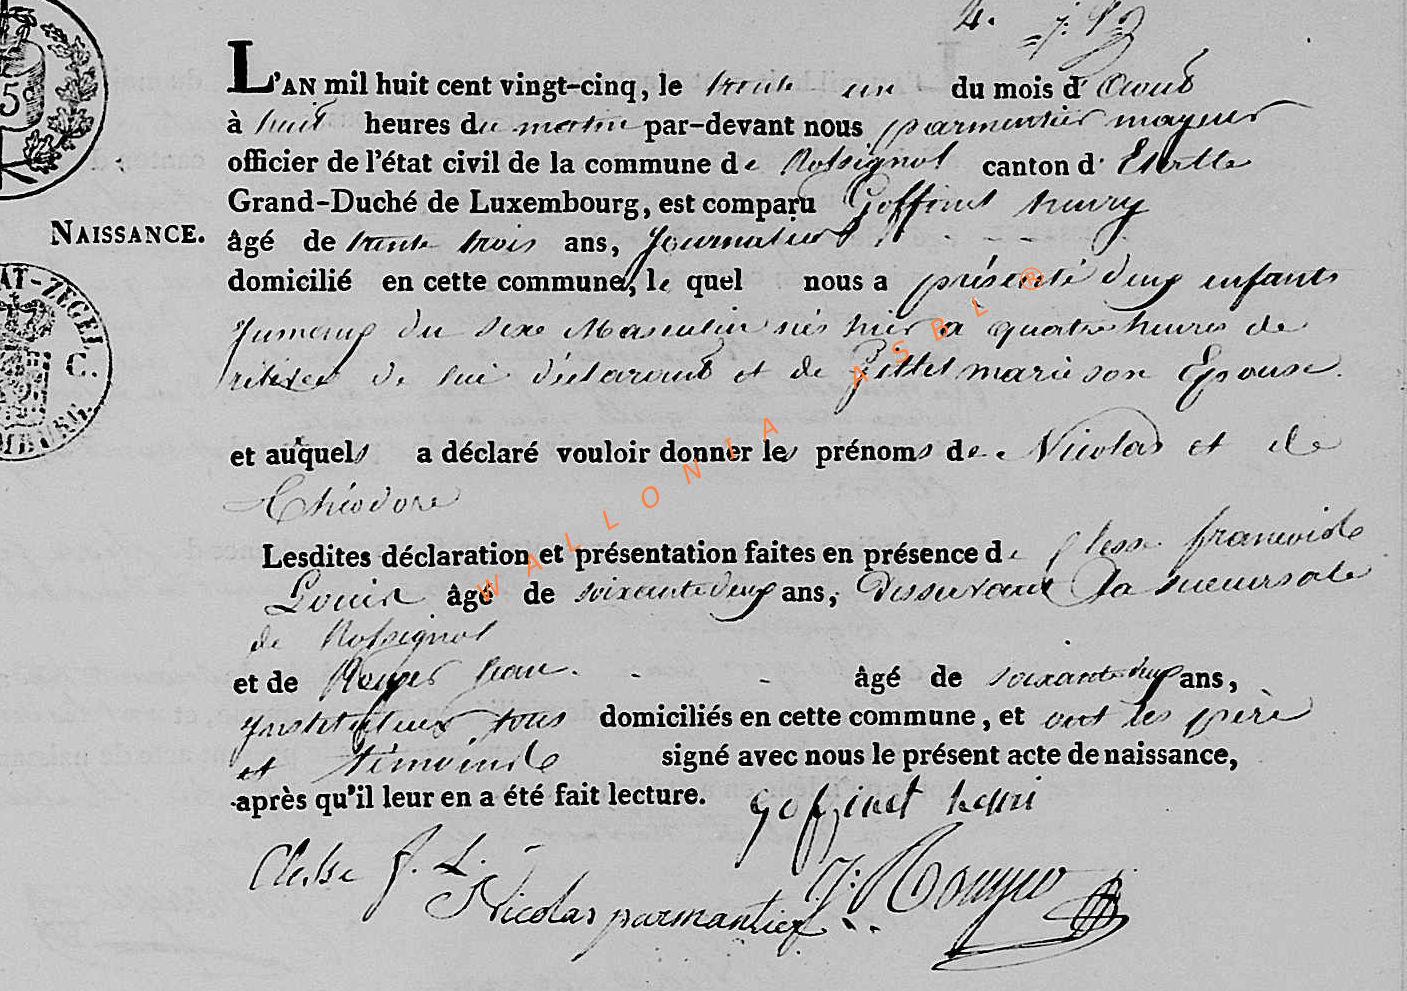 5c
AT-ZEGEL
C.
MBURG.
NAISSANCE.
4.
L'AN mil huit cent vingt-cinq, le trente un du mois d'Aout
à huit heures du matin par-devant nous parmentier mayeur
officier de l'état civil de la commune de Rossignol canton d'Etalle
Grand-Duché de Luxembourg, est comparu Goffinet henry
âgé de trente trois ans, Journalier
domicilié en cette commune, le quel nous a présenté deux enfants
Jumeaux du sexe Masculin nés hier a quatre heures de
de lui déclarant et de Gillet marie son Epouse.
et auquels a déclaré vouloir donner les prénoms de Nicolas et de
Théodore
Lesdites déclaration et présentation faites en présence de Clesse francois
Louis âgé de soixante deux ans, Desservant la succursale
de Rossignol
et de Jean. âgé de soixante ans,
Instituteur tous domiciliés en cette commune, et ont les père
et témoins signé avec nous le présent acte de naissance,
après qu'il leur en a été fait lecture.
goffinet henri
Clesse f. L.
Nicolas parmantier
WALLONIA ASBL ®